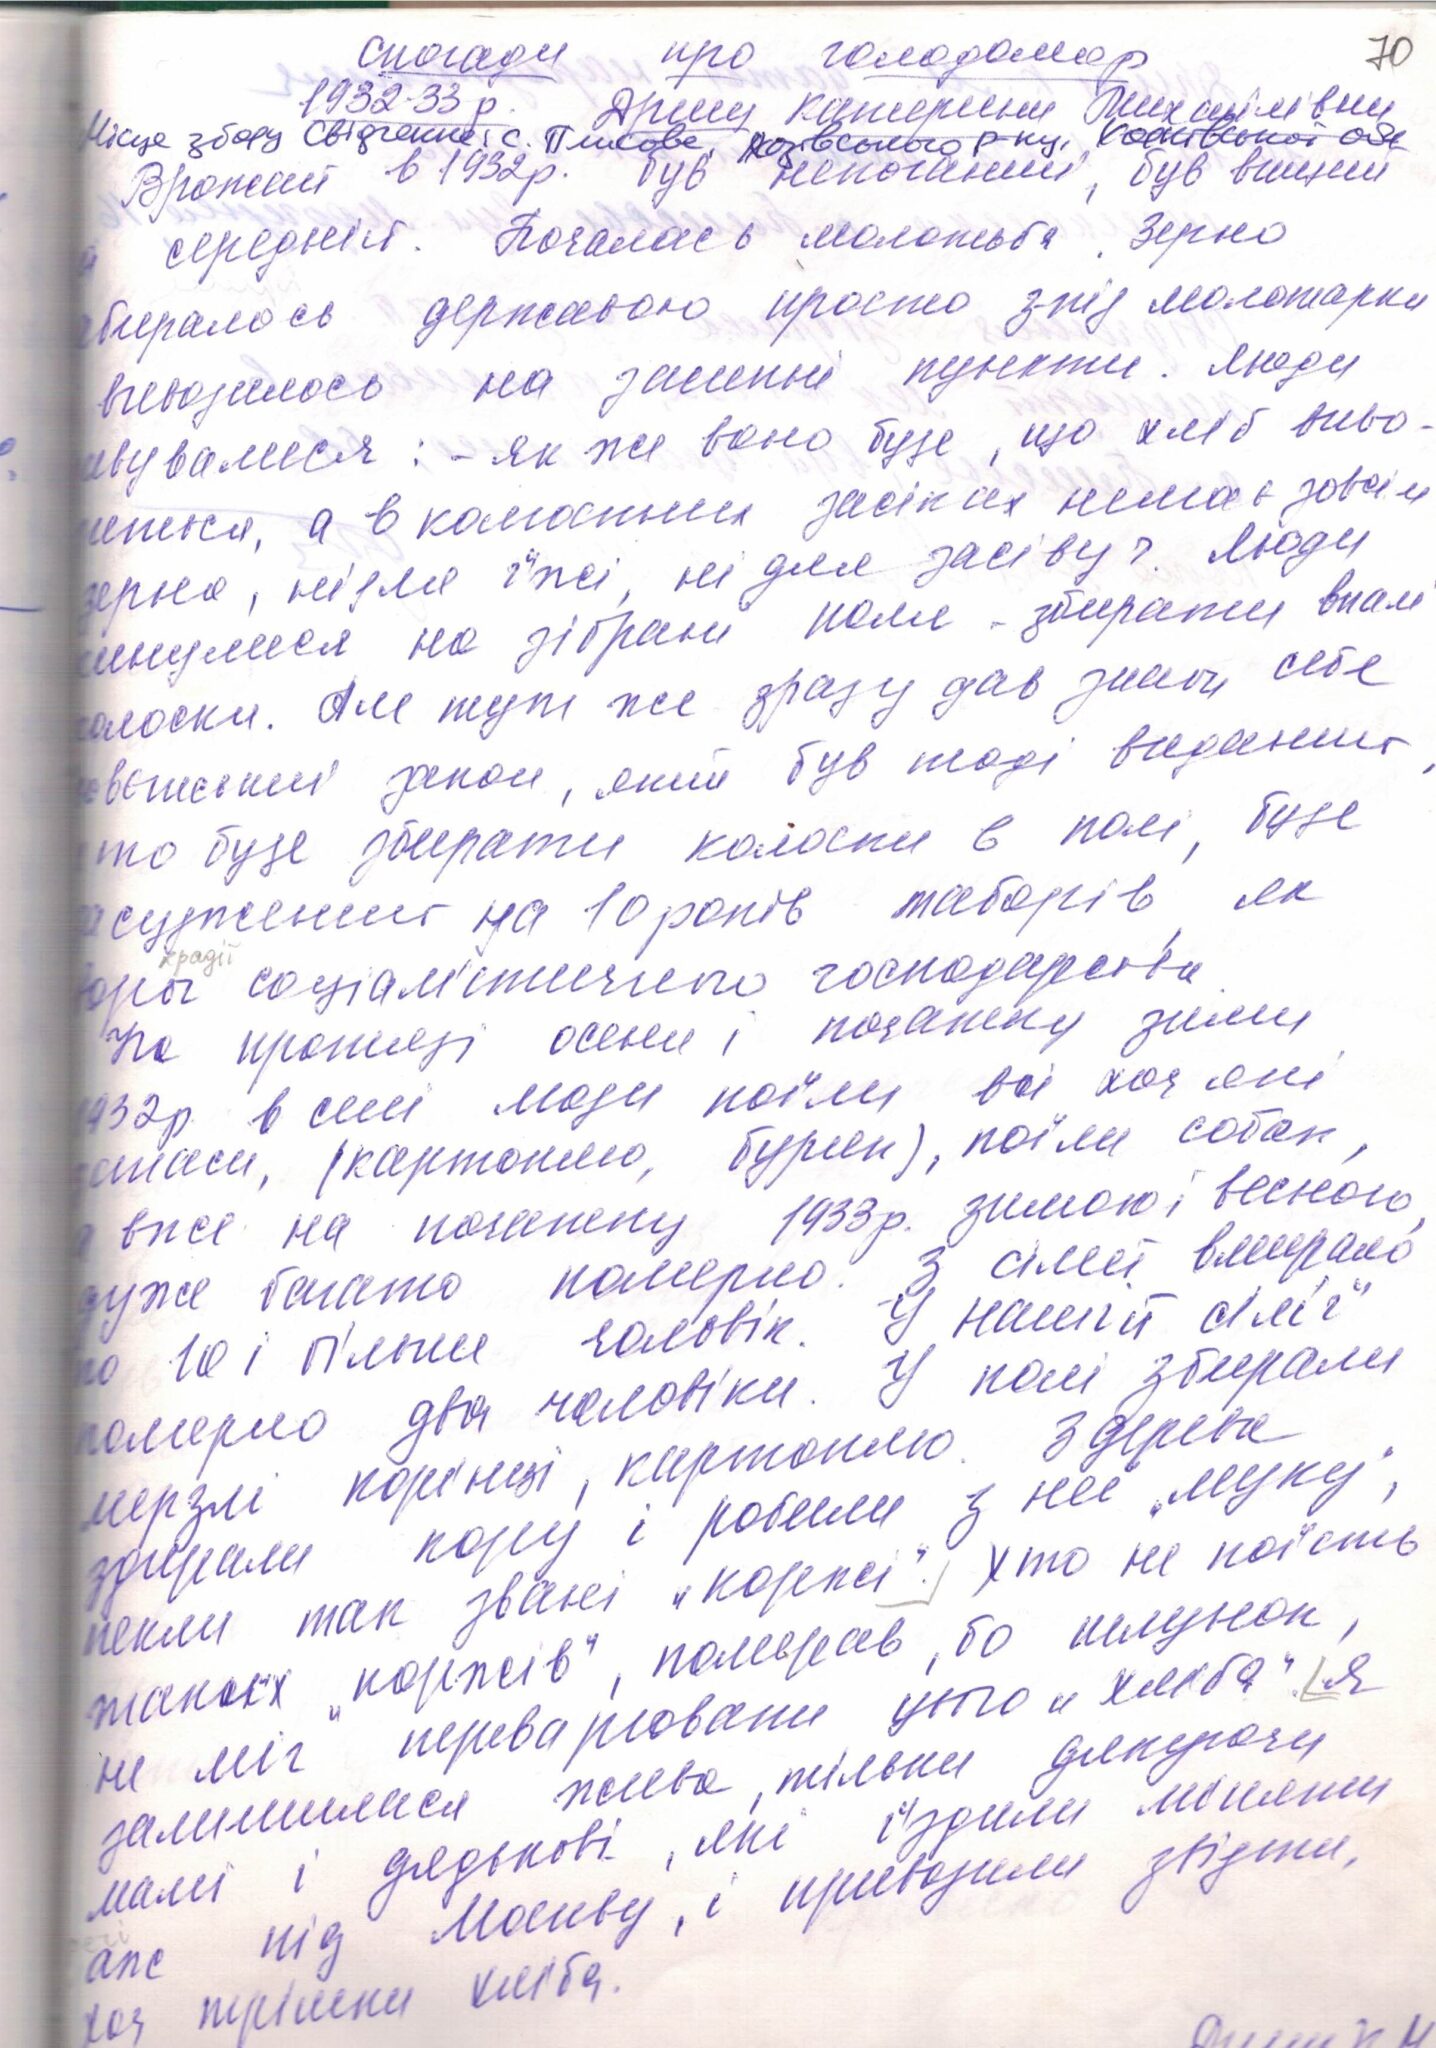 Спогади про голодомор
70
1932-33 р. Дриш Катерини Михайлівни
Місце збору свідчення: с. Пликове, р-ну, обл
Врожай в 1932р. був непоганий, був вищий
середній. Почалась молотьба. Зерно
биралось державою просто з-під молотарки
вивозилось на заипні пункти. Люди
вувалися: - як же воно буде, що хліб виво-
иться, а в колгоспних засіках немає зовсім
зерна, ні для їжі, ні для засіву? Люди
кинулися на зібрані поля - збирати впалі
олоски. Але тут же зразу дав знати себе
овєтський закон, який був тоді виданий,
то буде збирати колоски в полі, буде
асуджений на 10 років таборів, як
крадії
вори соціалістичного господарства.
На протязі осени і початку зими
1932р. в селі люди поїли всі хоч які
запаси, (картоплю, буряк), поїли собак,
а вже на початку 1933р. зимою і весною,
дуже багато померло. З сімей вмирало
по 10 і більше чоловік. У нашій сім'ї
померло два чоловіки. У полі збирали
мерзлі корінці, картоплю. З дерева
здирали кору і робили з неї „муку",
пекли так звані „коржі". Хто не поїсть
таких „коржів", помирав, бо шлунок,
не міг переварювати цього „хліба". Я
залишилася жива, тільки дякуючи
мамі і дядькові, які їздили міняти
аж під Москву, і привозили звідти,
хоч трішки хліба.